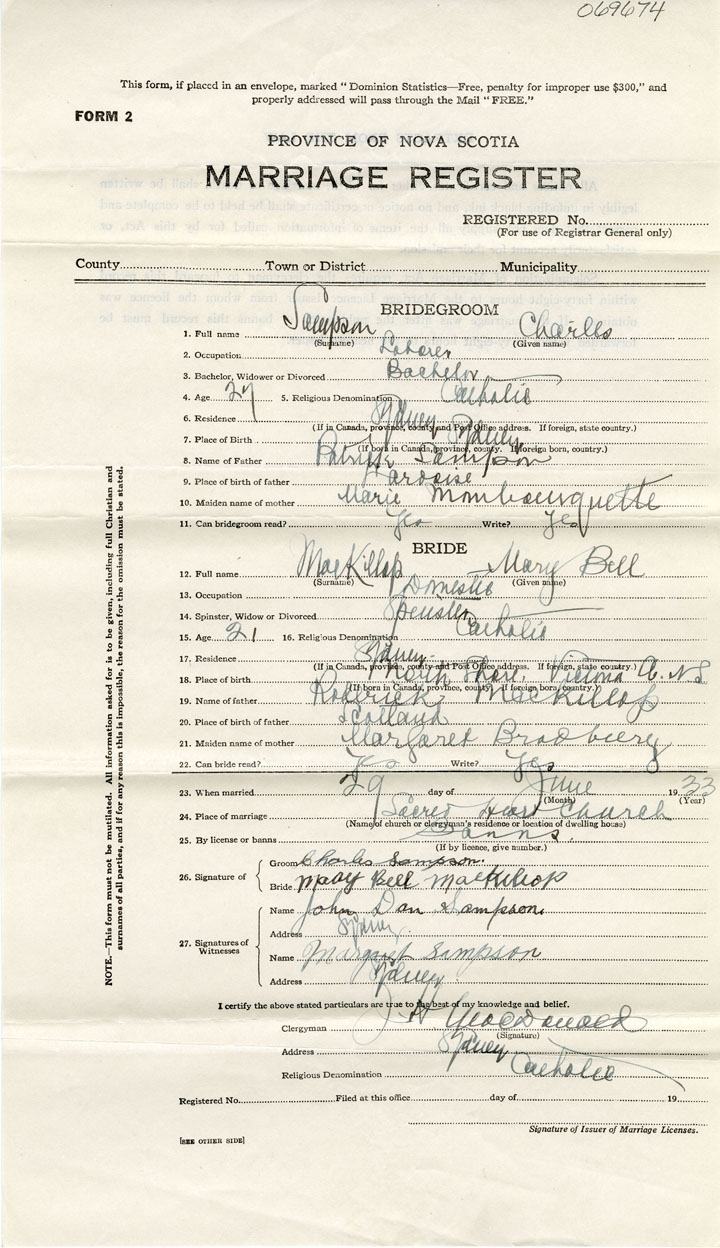 069674
This form, if placed in an envelope, marked "Dominion Statistics—Free, penalty for improper use $300," and
properly addressed will pass through the Mail "FREE."
FORM 2
PROVINCE OF NOVA SCOTIA
MARRIAGE REGISTER
REGISTERED No.
(For use of Registrar General only)
County Town or District Municipality
BRIDEGROOM
1. Full name Sampson Charles
(Surname) (Given name)
2. Occupation Laborer
3. Bachelor, Widower or Divorced Bachelor
4. Age 27 5. Religious Denomination Catholic
6. Residence Sydney
(If in Canada, province, county and Post Office address. If foreign, state country.)
7. Place of Birth Sydney
(If born in Canada, province, county. If foreign born, country.)
8. Name of Father Patrick Sampson
9. Place of birth of father Lardoise
10. Maiden name of mother Marie Mombourquette
11. Can bridegroom read? Yes Write? Yes
BRIDE
12. Full name MacKillop Mary Bell
(Surname) (Given name)
13. Occupation Domestic
14. Spinster, Widow or Divorced Spinster
15. Age 21 16. Religious Denomination Catholic
17. Residence Sydney
(If in Canada, province, county and Post Office address. If foreign, state country.)
18. Place of birth North Shore, Victoria Co. N.S
(If born in Canada, province, county. If foreign born, country.)
19. Name of father Roderick MacKillop
20. Place of birth of father Scotland
21. Maiden name of mother Margaret Bradbury
22. Can bride read? Yes Write? Yes
23. When married 29 day of June 1933
(Month) (Year)
24. Place of marriage Sacred Heart Church
(Name of church or clergyman's residence or location of dwelling house)
25. By license or banns Banns.
(If by licence, give number.)
26. Signature of
Groom Charles Sampson.
Bride Mary Bell MacKillop
27. Signatures of Witnesses
Name John Dan Sampson.
Address Sydney.
Name Margaret Sampson
Address Sydney
I certify the above stated particulars are true to the best of my knowledge and belief.
Clergyman MacDonald
(Signature)
Address Sydney
Religious Denomination Catholic
Registered No. Filed at this office day of 19
Signature of Issuer of Marriage Licenses.
[SEE OTHER SIDE]
NOTE.—This form must not be mutilated. All information asked for is to be given, including full Christian and
surnames of all parties, and if for any reason this is impossible, the reason for the omission must be stated.